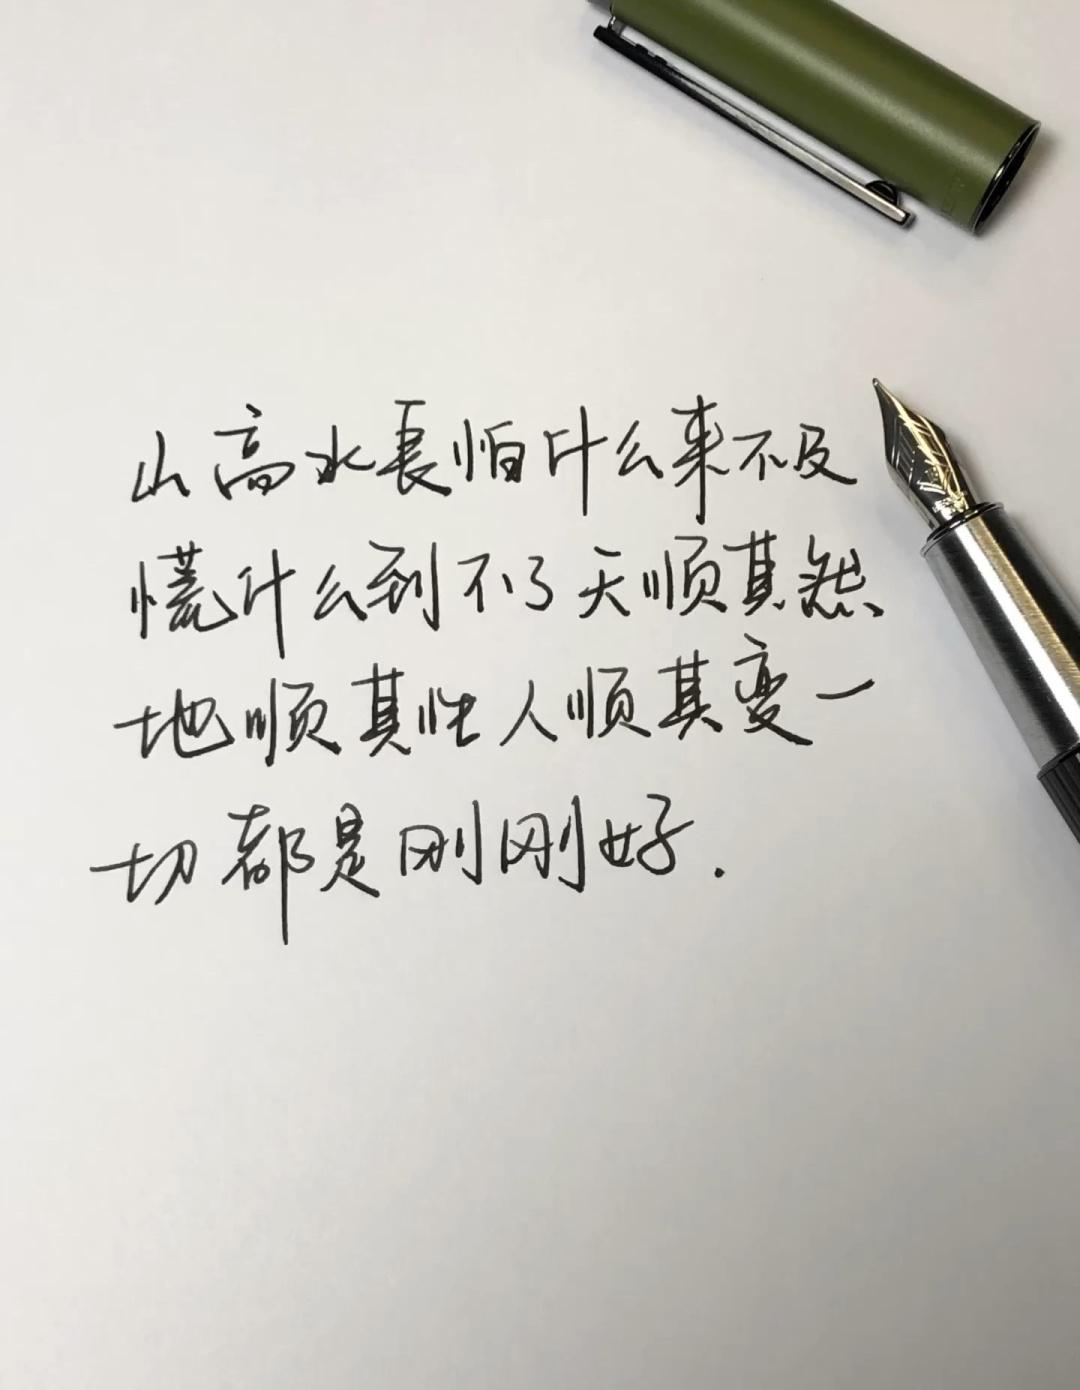 山高水長怕什么来不及
慌什么到不了天顺其然
地顺其性人顺其变一
切都是刚刚好.